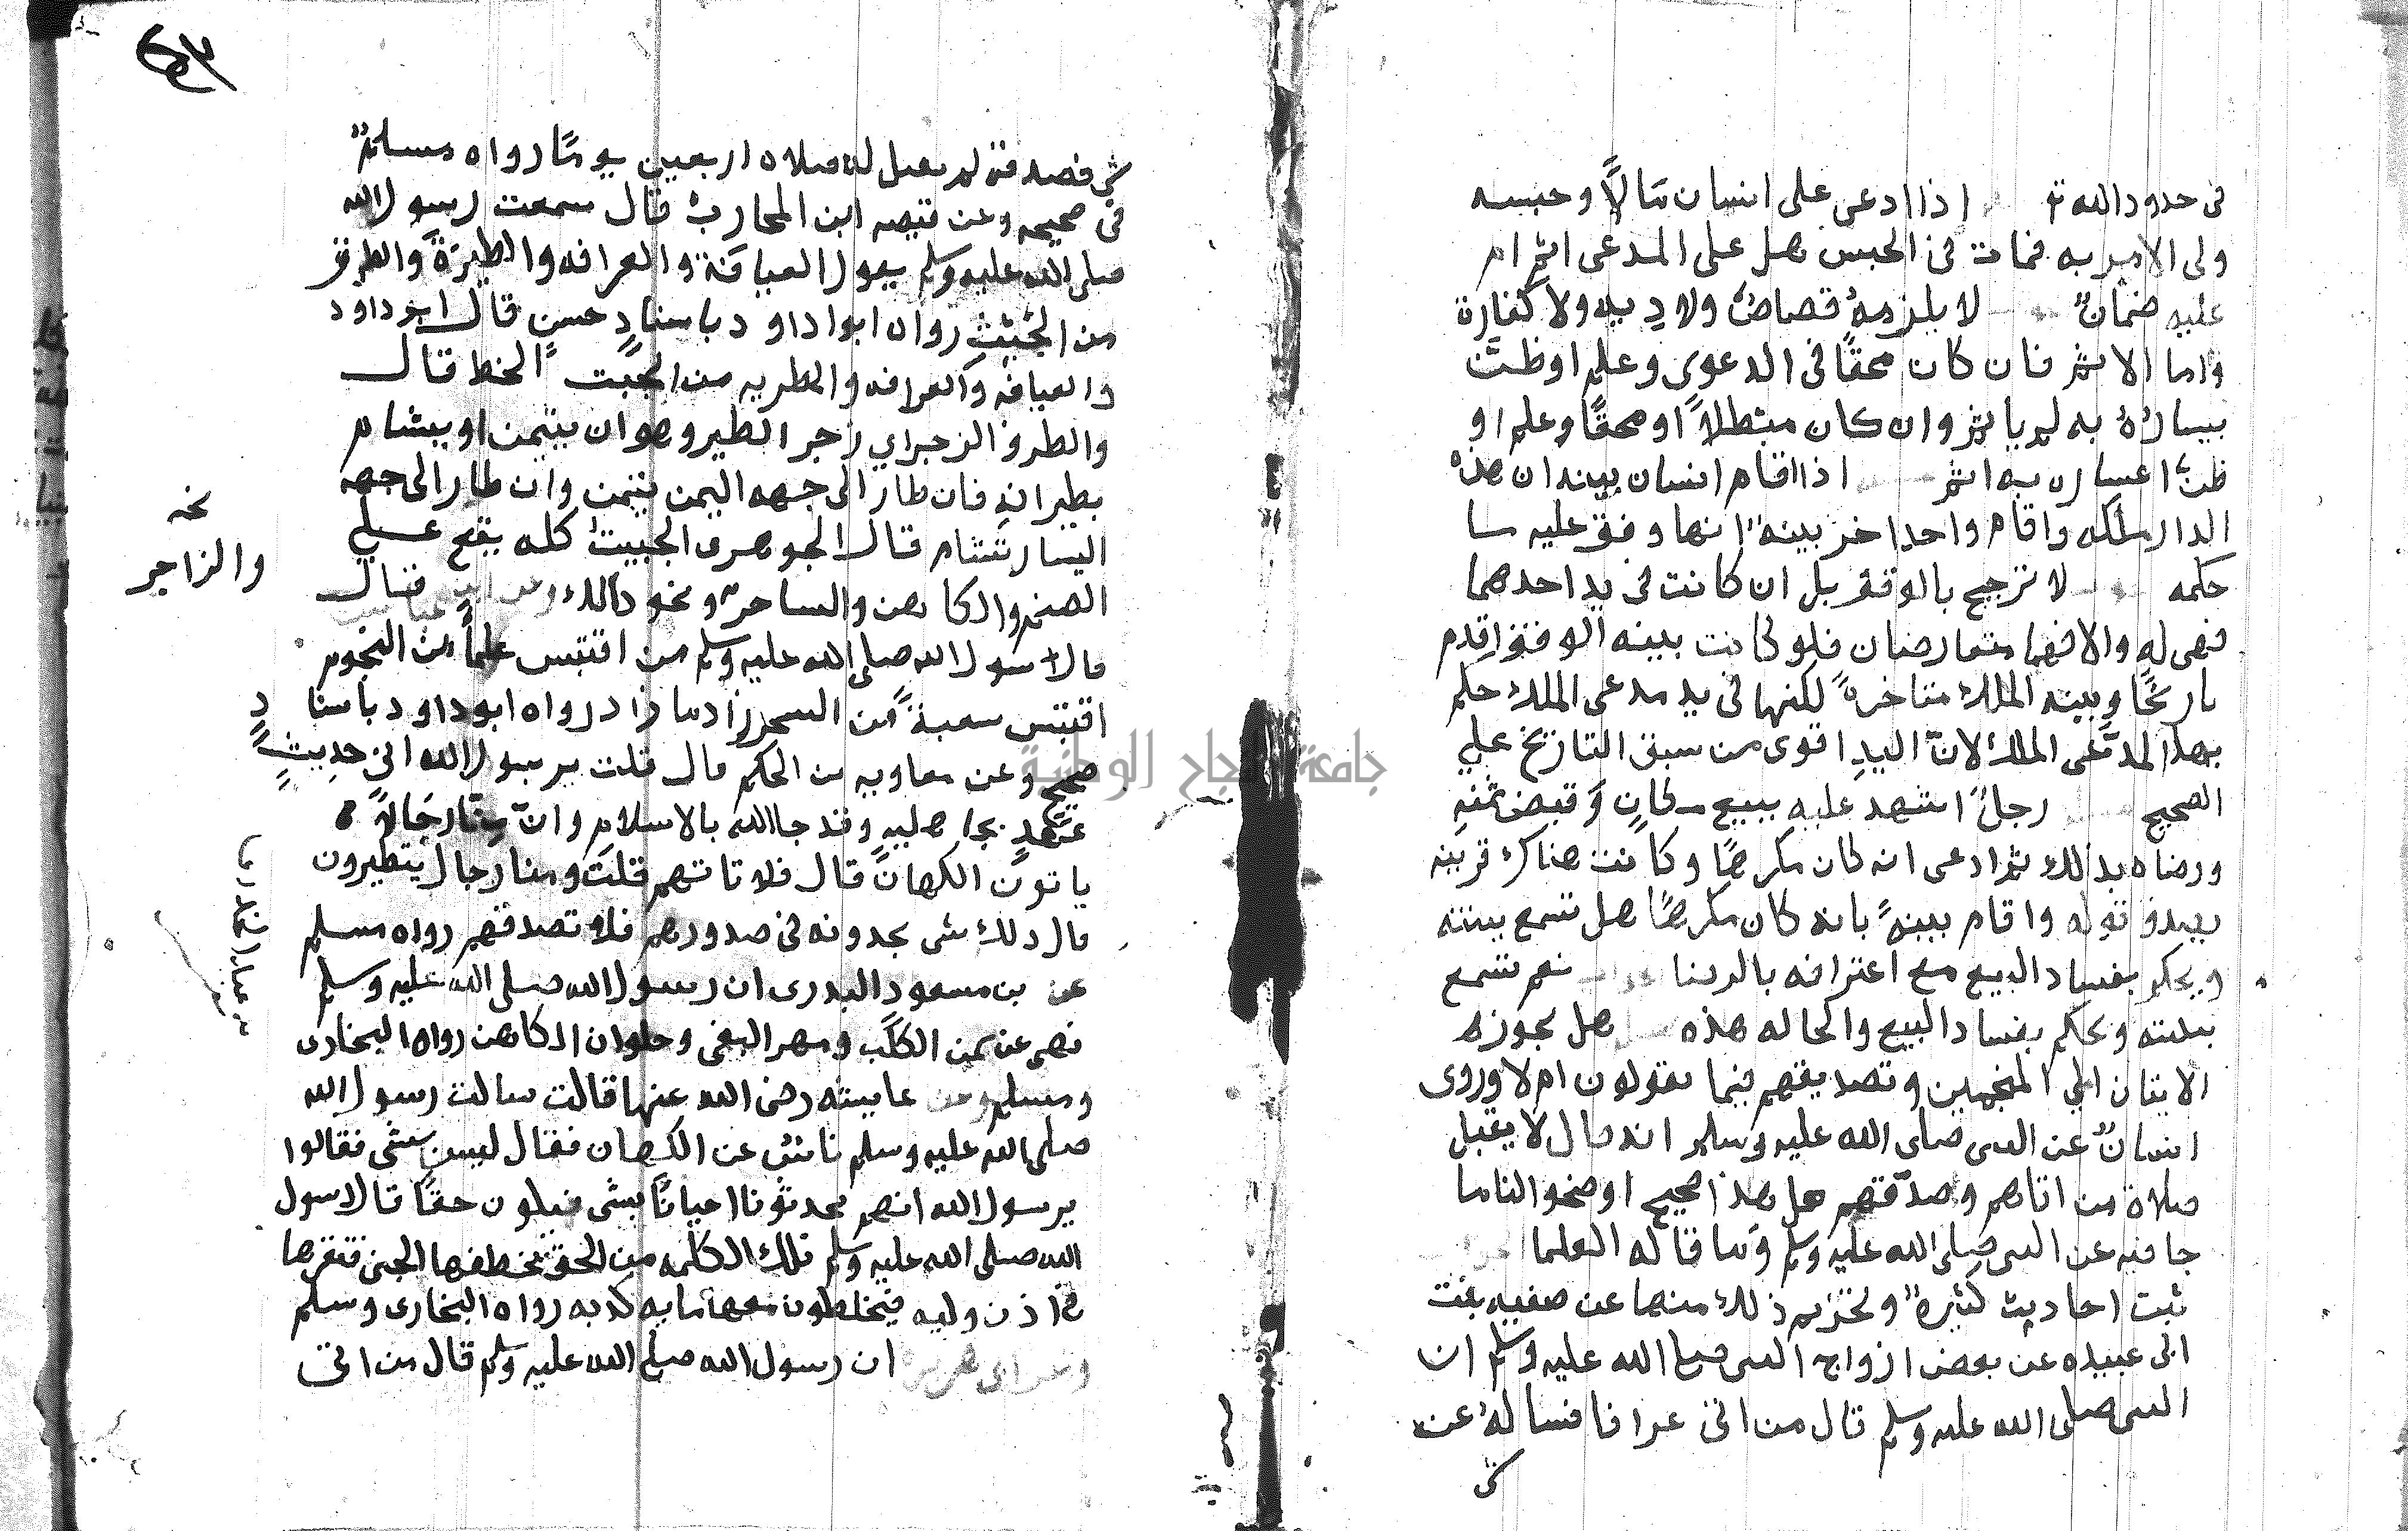 في حدود الله تع اذا ادعى على انسان مالاً وحبسه
ولي الامر به فمات في الحبس هل على المدعى اثم ام
عليه ضمانٌ لا يلزمهُ قصاصٌ ولا دِيه ولا كفارة
واما الاثم فان كان محقًا في الدعوى وعلم او ظنَّ
يساره به لم ياثم وان كان مبطلاً او محقًا وعلم او
ظنَّ اعساره به اثم اذا اقام انسان بينه ان هذه
الدار ملكه واقام واحد اخر بينهً انها وقف عليه ما
حكمه لا ترجيح بالوقف بل ان كانت في يد احدهما
فهى له والا فهما متعارضان فلو كانت بينه الوقف اقدم
تاريخًا وبينه الملك متاخرهً لكنها في يد مدعى الملك حكم
بها لمدَّعى الملك لانّ اليدِ اقوى من سبق التاريخ على
الصحيح رجلٌ اشهد عليه ببيع مكانٍ وقبض ثمنهِ
ورضاه بذلك ثم ادعى انه كان مكرهًا وكانت هناك قرينه
بصدق قوله واقام بينهً بانه كان مكرهًا هل تسمع بينته
ويحكم بفساد البيع مع اعترافه بالرضا نعم تسمع
بينته ويحكم بفساد البيع والحاله هذه هل يجوز
الاتيان الي المنجمين وتصديقهم فيما يقولون ام لا وروى
انسانٌ عن النبى صلى الله عليه وسلم انه قال لا يقبل
صلاة من اتاهم وصدّقهم هل هذا صحيح اوضحوا لنا ما
جا فيه عن النبى صلى الله عليه وسلم وما قاله العلما
ثبت احاديث كثيرهٌ وتحريم ذلك منها عن صفيه بنت
ابى عبيده عن بعض ازواج النبى صلى الله عليه وسلم ان
النبى صلى الله عليه وسلم قال من اتى عرافا فساله عن
شى
شى فصدقه لم يقبل له صلاه اربعين يومًا رواه مسلمٌ
في صحيحه وعن قبيصه ابن المخارق قال سمعت رسول الله
صلى الله عليه وسلم يقول العيافة والعرافه والطيرة والطرق
من الجبت رواه ابوا داو د باسنادٍ حسنٍ قال ابو داود
والعيافه والعرافه والطريه من الجبت الخط قال
والطرق الزجر اي زجر الطير وهو ان يتيمن او يتشام
بطيرانهِ فان طار الى جهه اليمن تيمن وان طار الى جهه
اليسار تشام قال الجوهرى الجبت كله يقع علي
الصنم والكاهن والساحر ونحو ذالك وعن ابن عباس قال
قال رسول الله صلى الله عليه وسلم من اقتبس علمًا من النجوم
اقتبس شعبةً من السحر زاد ما زاد رواه ابو داود باسنادٍ
صحيح وعن معاويه بن الحكم قال قلت يرسول الله اني حديثٍ
عهدٍ بجاهليه وقد جا الله بالاسلام وانّ منّا رجالاً
ياتون الكهان قال فلا تاتهم قلت ومنا رجال يتطيرون
قال ذلك شى يجدونه في صدورهم فلا تصدقهم رواه مسلم
عن بن مسعود البدرى ان رسول الله صلى الله عليه وسلم
نهى عن ثمن الكلب ومهر البغى وحلوان الكاهن رواه البخارى
ومسلم وعن عايشه رضى الله عنها قالت سالت رسول الله
صلى الله عليه وسلم ناسٌ عن الكهان فقال ليس بشى فقالوا
يرسول الله انهم يحدثونا احيانًا بشى فيكون حقًا قال رسول
الله صلى الله عليه وسلم تلك الكلمه من الحق يخطفها الجنى فيقرها
في اذن وليه فيخلطون معها مايه كذبه رواه البخارى ومسلم
وعن ابى هريره ان رسول الله صلى الله عليه وسلم قال من اتى
نخه
والزاجر
جامعة النجاح الوطنية